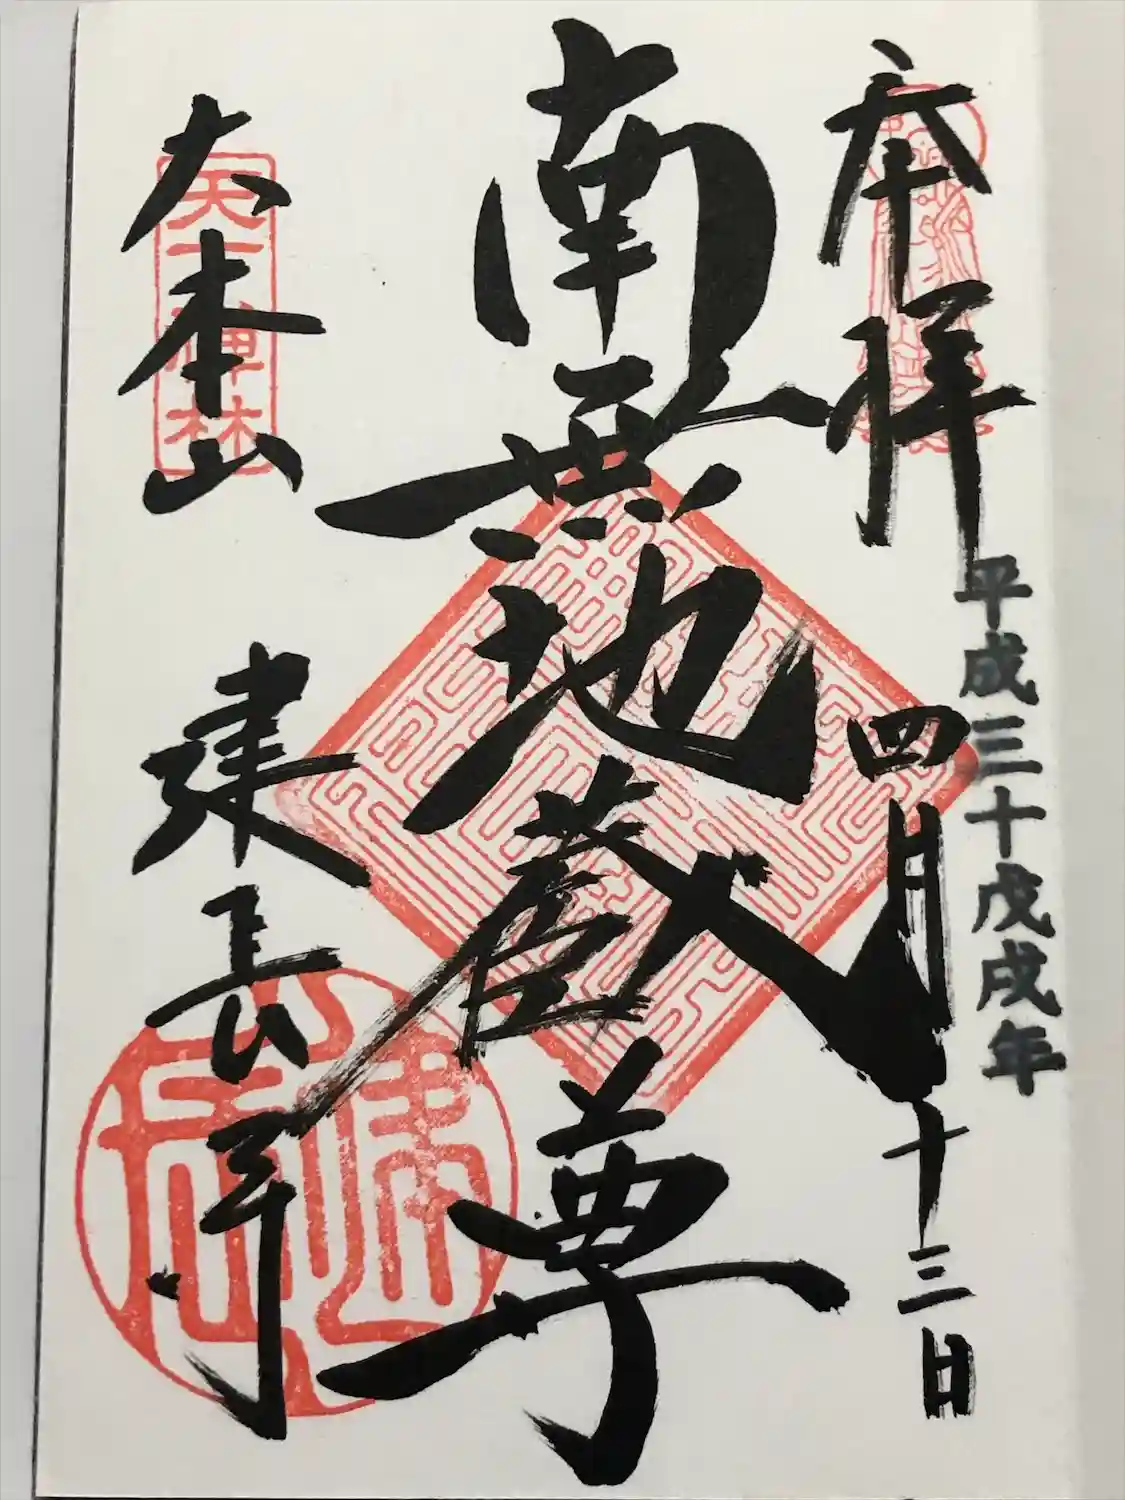 奉拝
平成三十戊戌年
四月十三日
南無地蔵尊
大本山
建長寺
天下禅林
建長